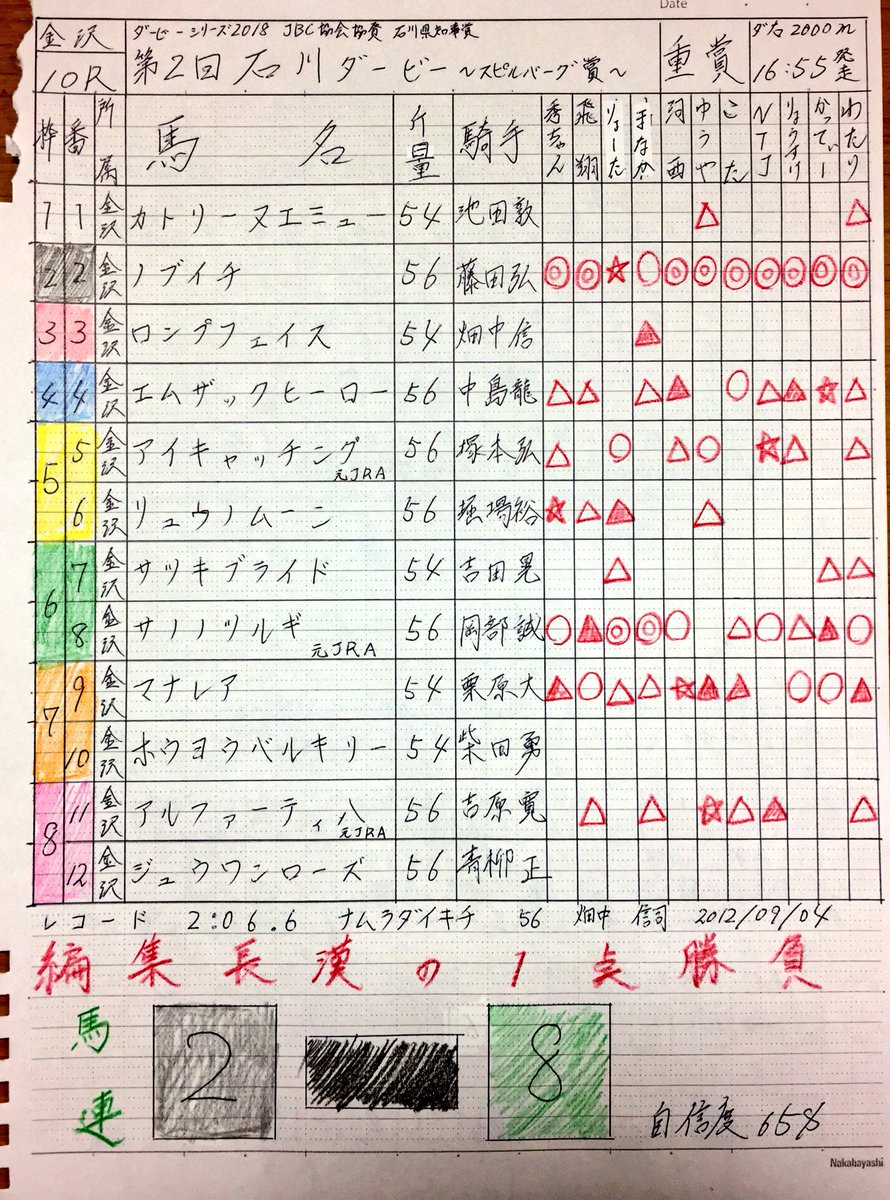 Date
金沢 ダービーシリーズ2018 JBC協会協賛 石川県知事賞 ダ右2000m
10R 第2回石川ダービー～スピルバーグ賞～ 重賞 16:55発走
枠 番 所属 馬名 斤量 騎手 秀ちゃん 飛翔 りょーた まなか 河西 ゆうや こた NTJ りょうすけ かってぃー わたり
1 1 金沢 カトリーヌエミュー 54 池田敦 △ △
2 2 金沢 ノブイチ 56 藤田弘 ◎ ◎ ☆ ○ ◎ ◎ ◎ ◎ ◎ ◎ ◎
3 3 金沢 ロンプフェイス 54 畑中信 ▲
4 4 金沢 エムザックヒーロー 56 中島龍 △ △ △ ▲ ○ △ ▲ ☆ △
5 5 金沢 アイキャッチング 元JRA 56 塚本弘 △ ○ △ ○ ★ △ △
6 金沢 リュウノムーン 56 堀場裕 ★ △ ▲ △
6 7 金沢 サツキブライド 54 吉田晃 △ △ △
8 金沢 サノノツルギ 元JRA 56 岡部誠 ○ ▲ ◎ ◎ ○ △ ○ △ ▲ ○
7 9 金沢 マナレア 54 栗原大 ▲ ○ △ △ ☆ ▲ ▲ ○ ○ ▲
10 金沢 ホウヨウバルキリー 54 柴田勇
8 11 金沢 アルファーティハ 元JRA 56 吉原寛 △ △ ☆ △ ▲ △
12 金沢 ジュウワンローズ 56 青柳正
レコード 2:06.6 ナムラダイキチ 56 畑中 信司 2012/09/04
編集長漢の1点勝負
馬連 2 8
自信度 65%
Nakabayashi